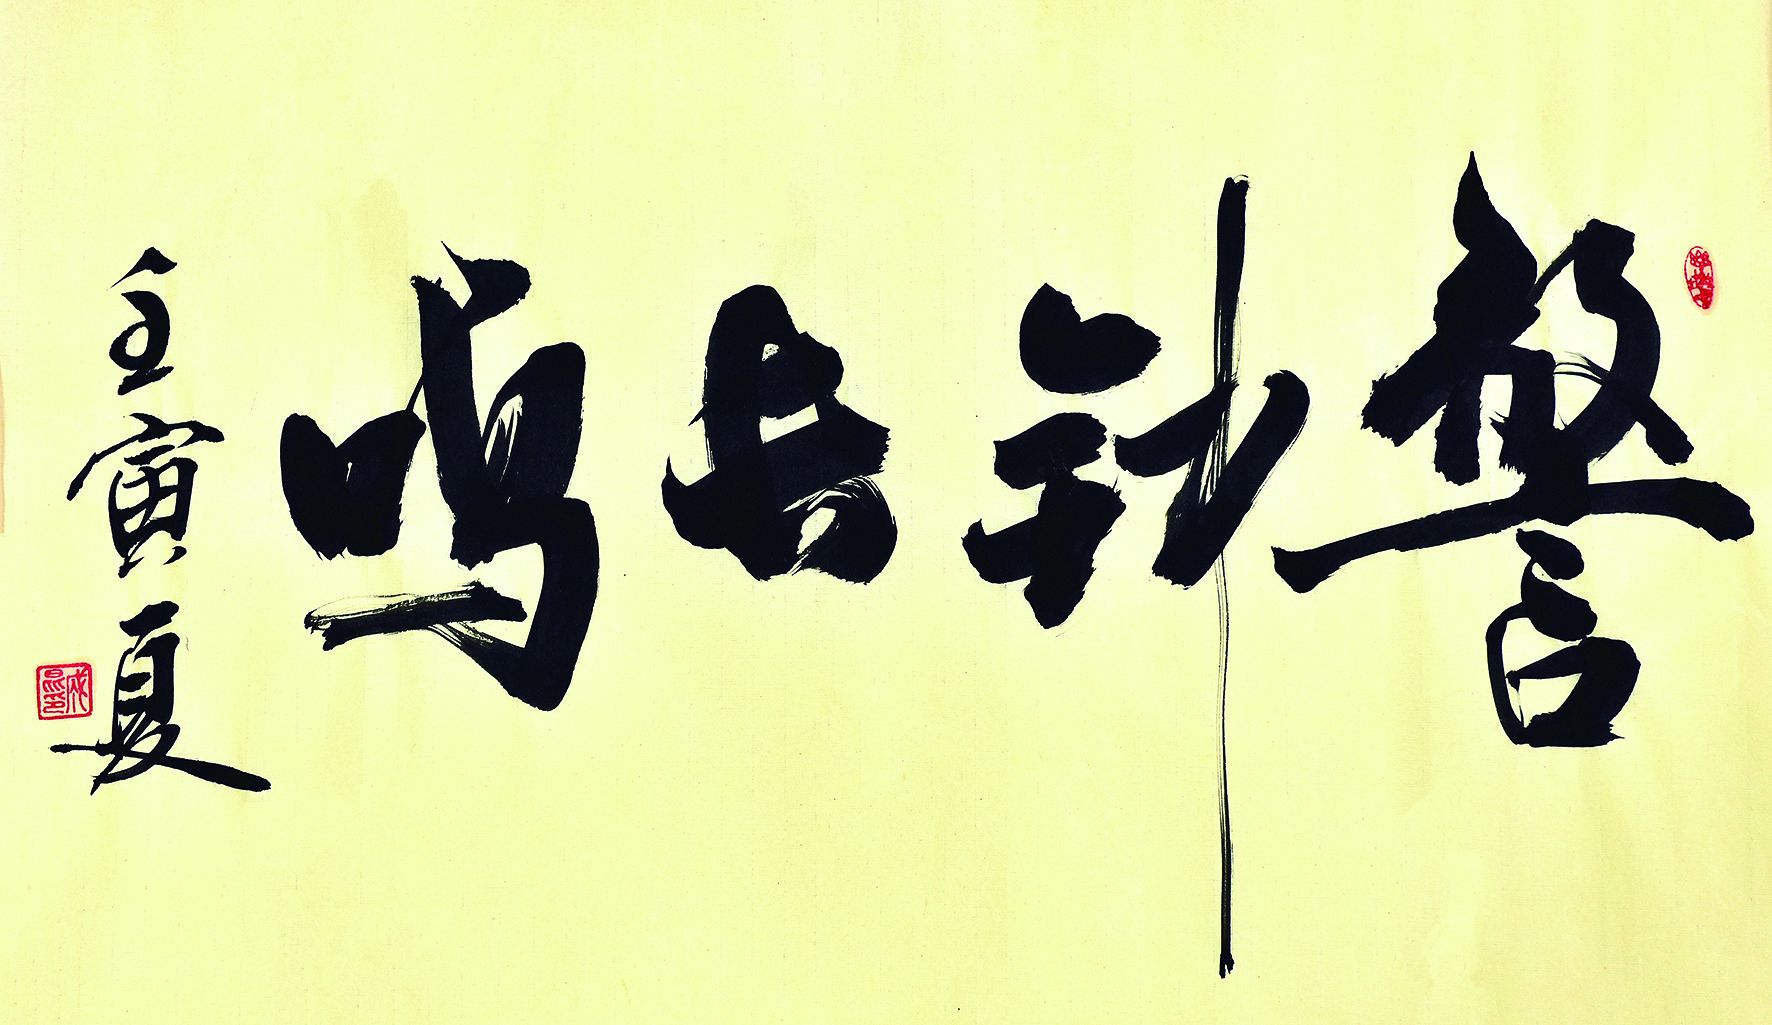 警钟长鸣
壬寅夏